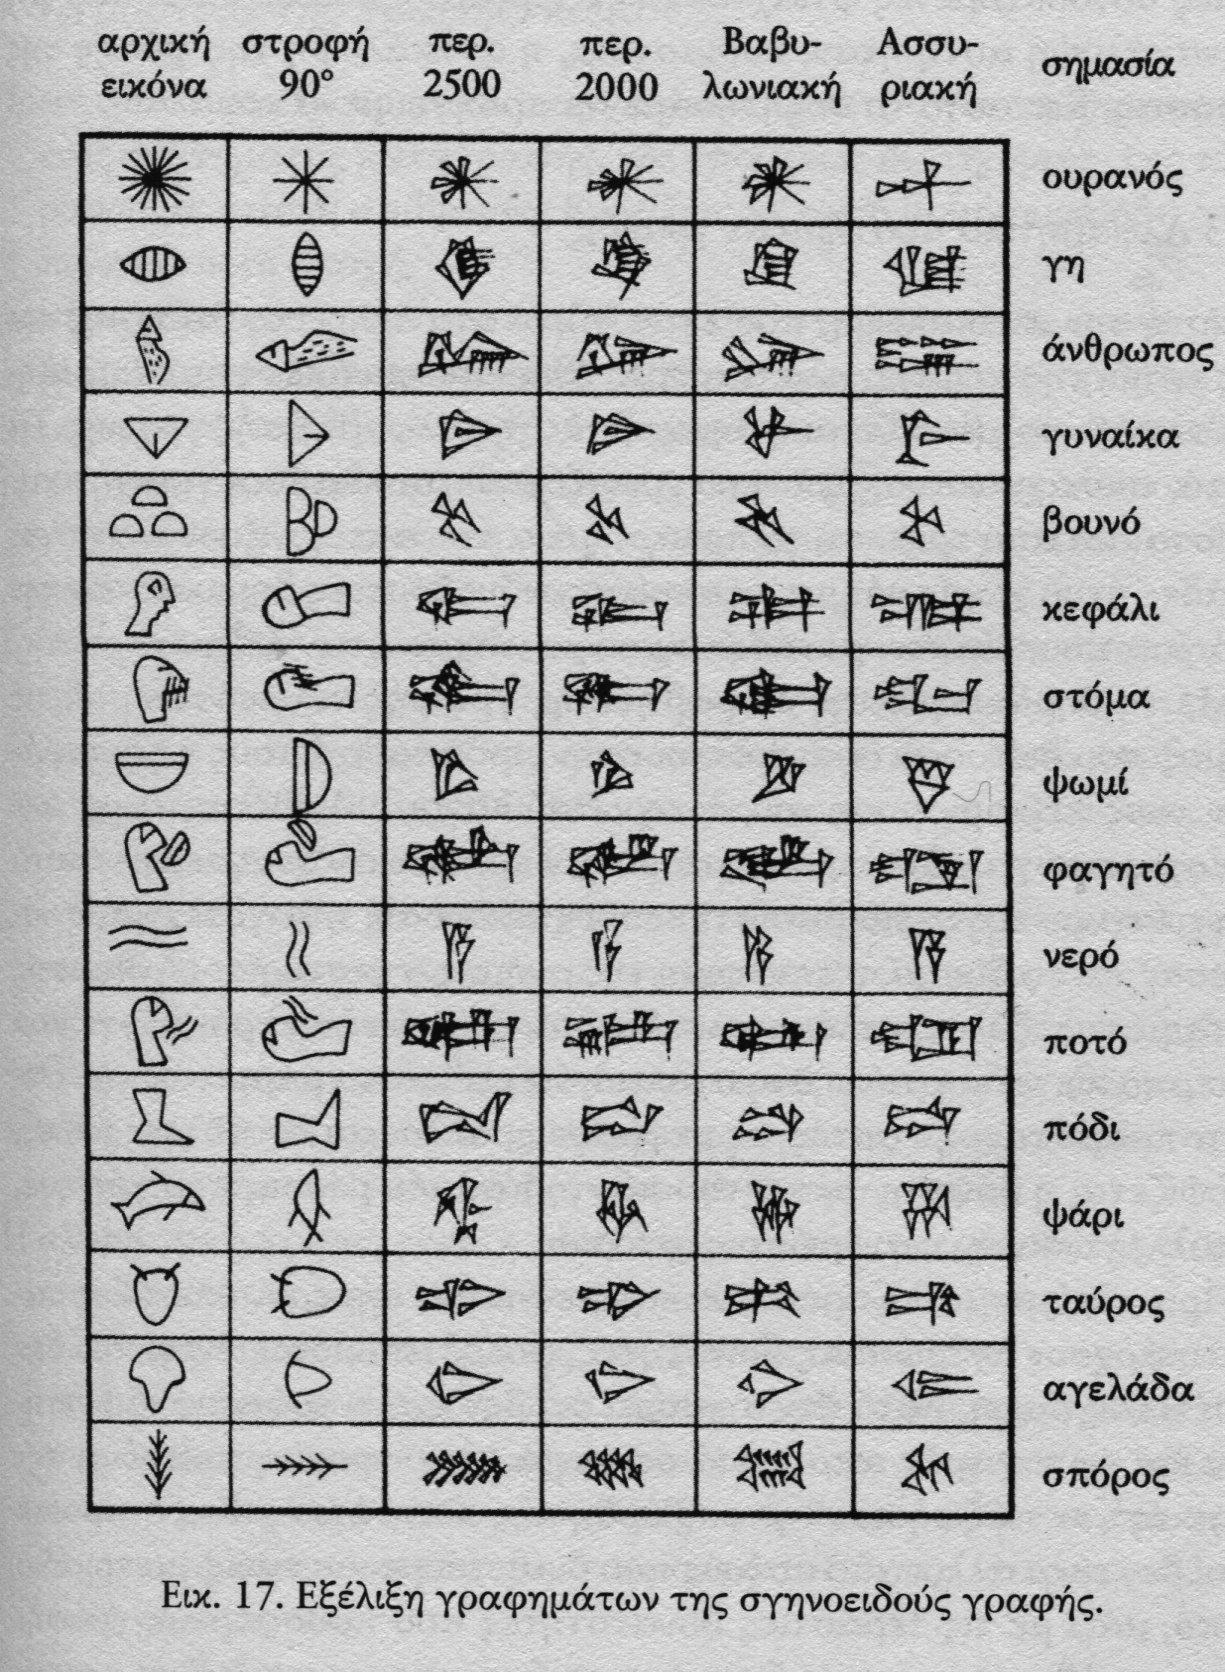 αρχική εικόνα στροφή 90° περ. 2500 περ. 2000 Βαβυ-λωνιακή Ασσυ-ριακή σημασία
ουρανός
γη
άνθρωπος
γυναίκα
βουνό
κεφάλι
στόμα
ψωμί
φαγητό
νερό
ποτό
πόδι
ψάρι
ταύρος
αγελάδα
σπόρος
Εικ. 17. Εξέλιξη γραφημάτων της σφηνοειδούς γραφής.